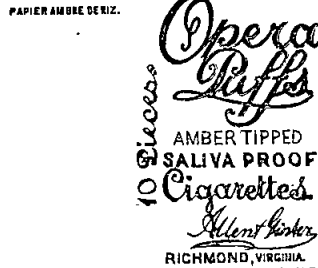 PAPIER AMBRE DE RIZ.
Opera
Puffs
10 Pieces.
AMBER TIPPED
SALIVA PROOF
Cigarettes.
Allen & Ginter
RICHMOND, VIRGINIA.